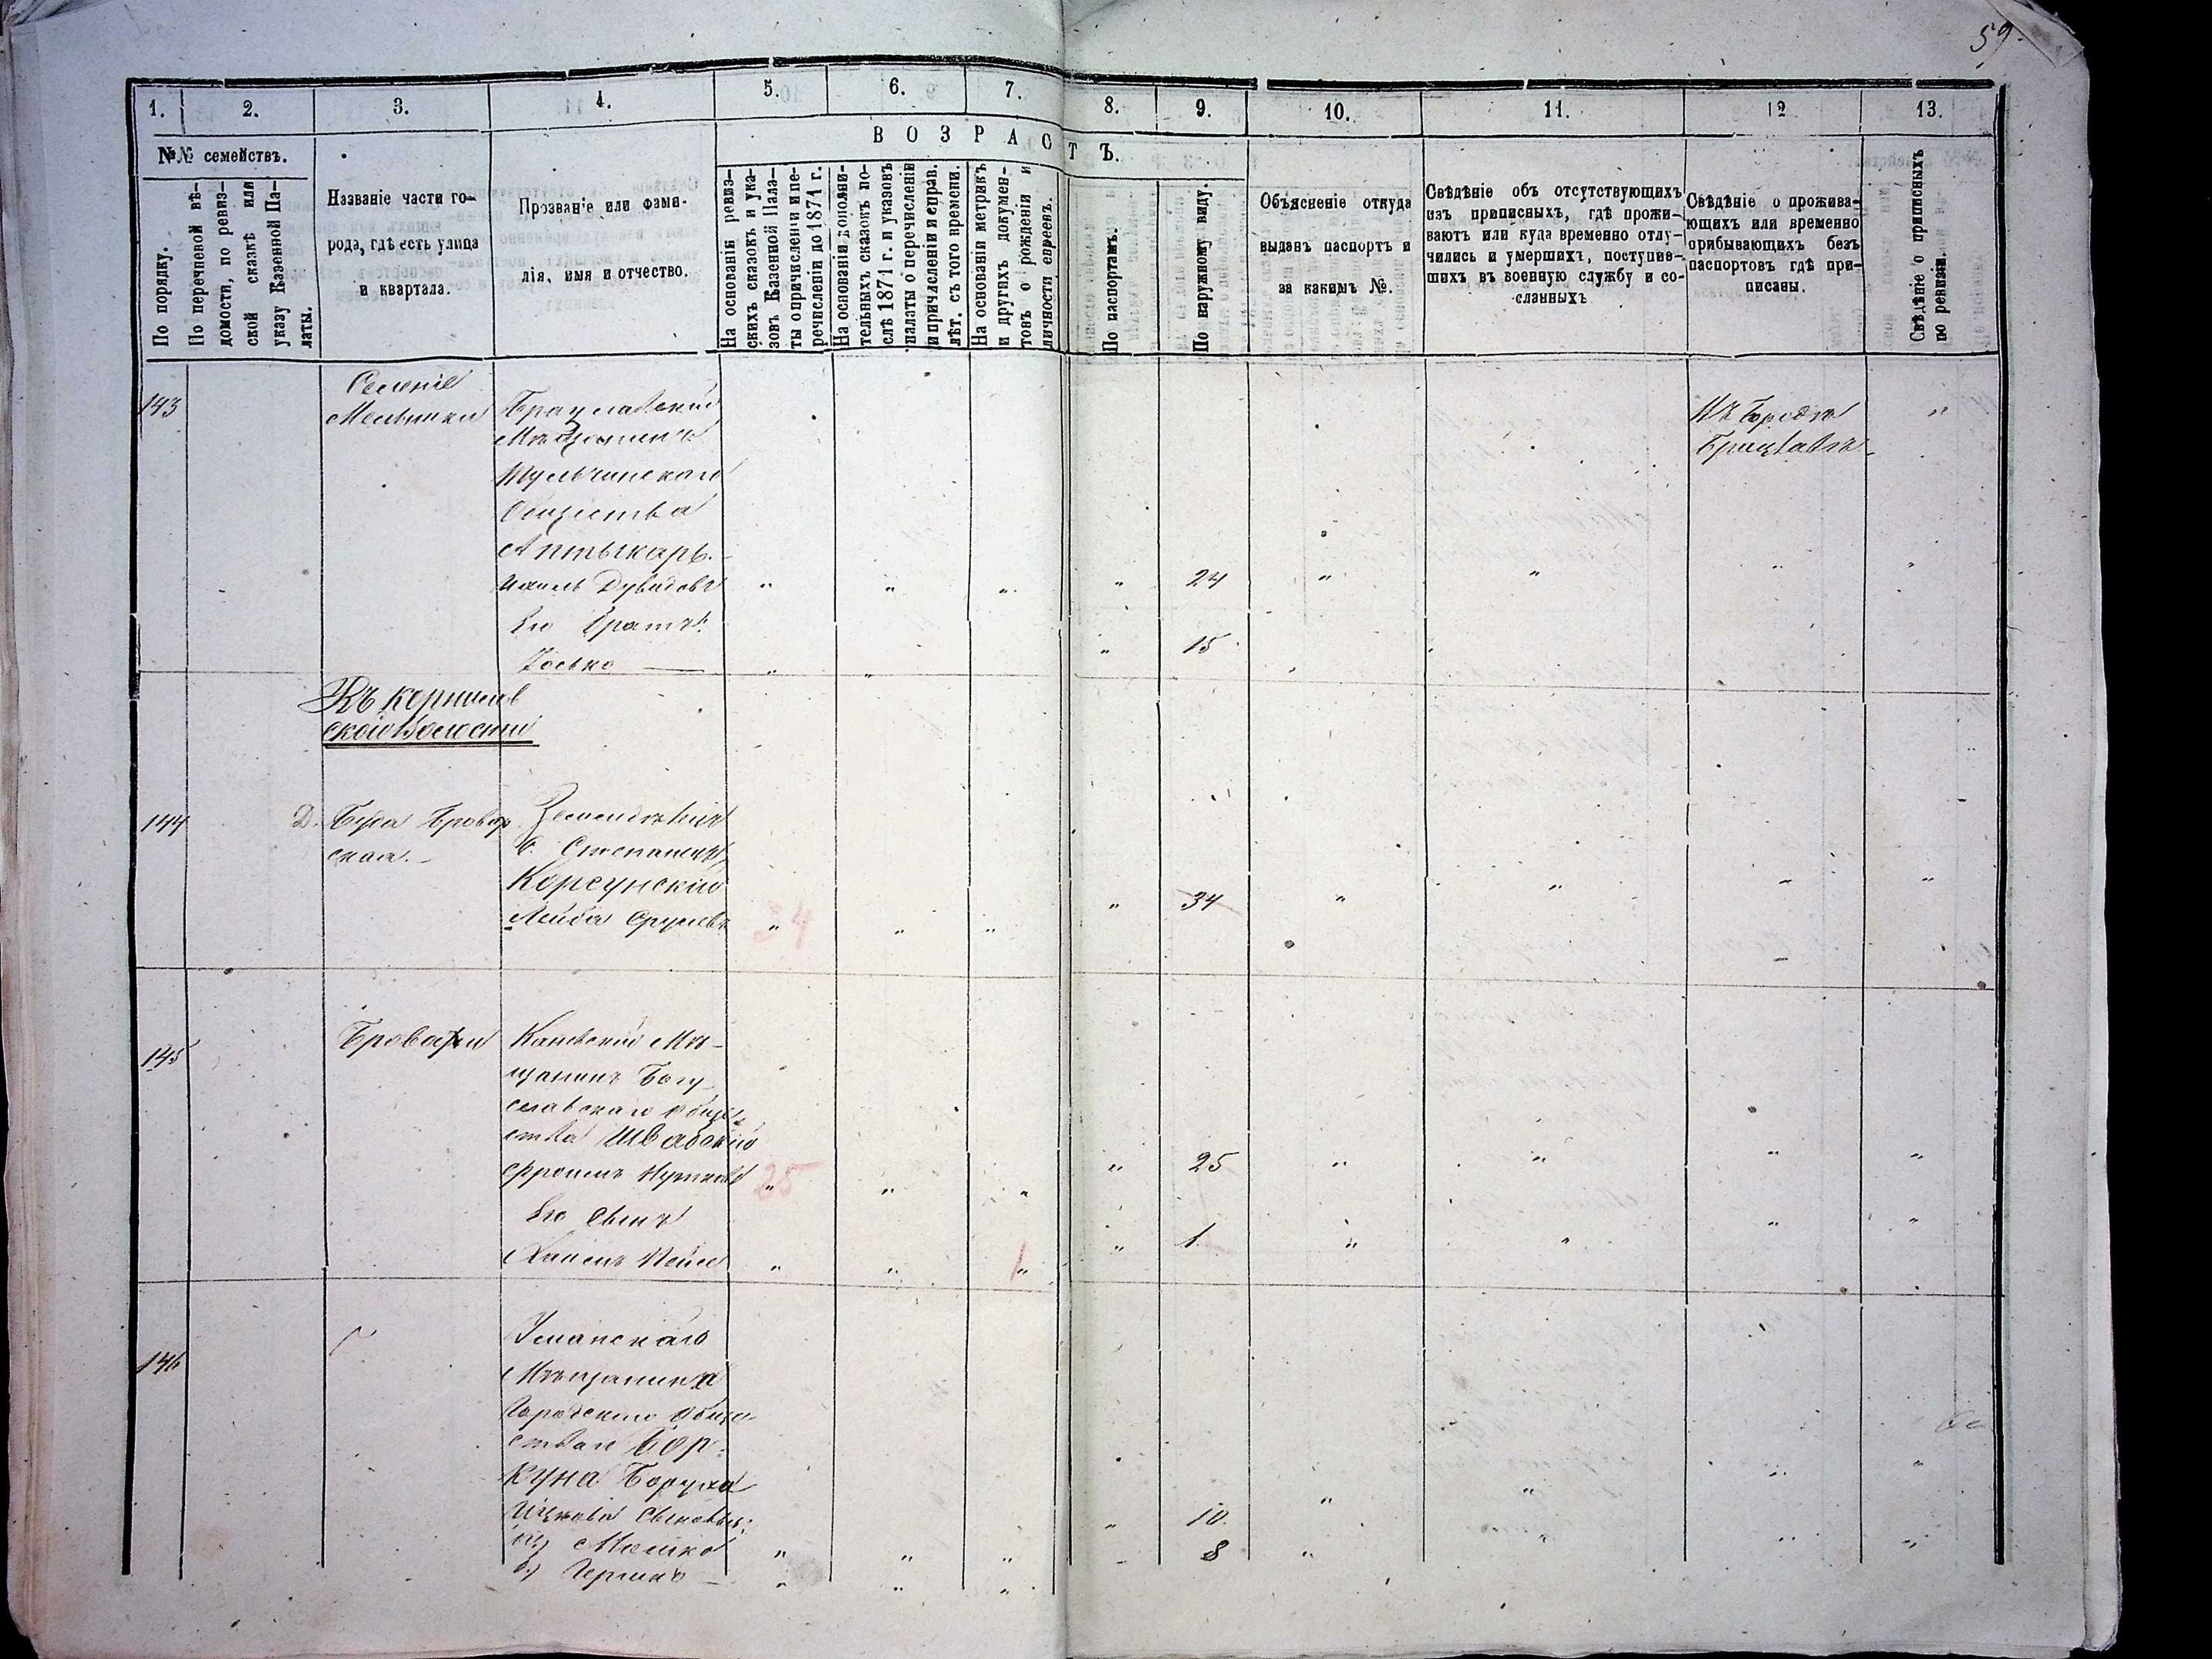 59.
1. 2. 3. 4. 5. 6. 7. 8. 9. 10. 11. 12 13.
№№ семействъ.
По порядку.
По перечневой вѣ-
домости, по ревиз-
ской сказкѣ или
указу Казенной Па-
латы.
Названіе части го-
рода, гдѣ есть улица
и квартала.
Прозваніе или фами-
лія, имя и отчество.
ВОЗРАСТЪ.
На основаніи ревиз-
скихъ сказокъ и ука-
зовъ Казенной Пала-
ты о причисленіи и пе-
речисленіи до 1871 г.
На основаніи дополни-
тельныхъ сказокъ по-
слѣ 1871 г. и указовъ
палаты о перечисленіи
и причисленіи и справ.
лѣт. съ того времени.
На основаніи метрикъ
и другихъ докумен-
товъ о рожденіи и
личности евреевъ.
По паспортамъ.
По наружному виду.
Объясненіе откуда
выданъ паспортъ и
за какимъ №.
Свѣдѣніе объ отсутствующихъ
изъ приписныхъ, гдѣ прожи-
ваютъ или куда временно отлу-
чились и умершихъ, поступив-
шихъ въ военную службу и со-
сланныхъ
Свѣдѣніе о прожива-
ющихъ или временно
прибывающихъ безъ
паспортовъ гдѣ при-
писаны.
Свѣдѣніе о приписныхъ
по ревизіи.
143
Селеніе
Мельники
Брацлавскій
Мѣщанинъ
Тульчинскаго
Общества
Аптыкарь.
Дувидовъ " " " " 24 " " " "
Его братъ
Іосько " " " 15
Въ городѣ
Брацлавѣ "
Въ корнилов
ской Волости
144
Д. Буда Бровар
ская.
Земледѣлецъ
с. Степанецъ
Корсунскій
Лейба Сруловъ 34 " " " " 34 " " " "
145
Бровахи
Каневскій Мѣ-
щанинъ Богу
славскаго обще-
ства Швабскій
Фроимъ 25 " " " " 25 " " " "
Его сынъ
Хаимъ " " 1 " " 1 " " " "
146
"
Уманскаго
Мѣщанина
Городскаго обще-
ства Бор-
куна Боруха
Ицкова Сыновья:
а) Мошко " " " " 10 " " " "
б) Гершко " " " " 8 " " " "